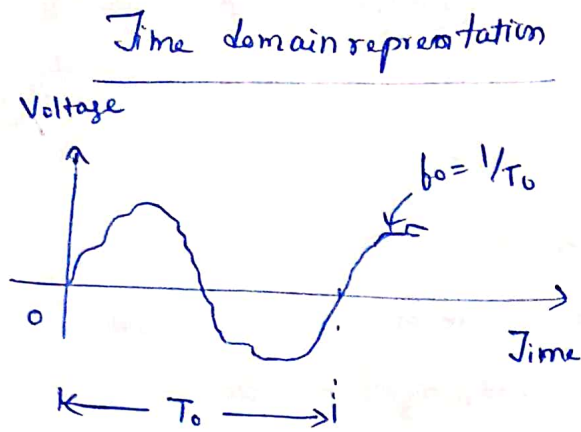 Time domain represtation
Voltage
fo = 1/To
0
Time
To